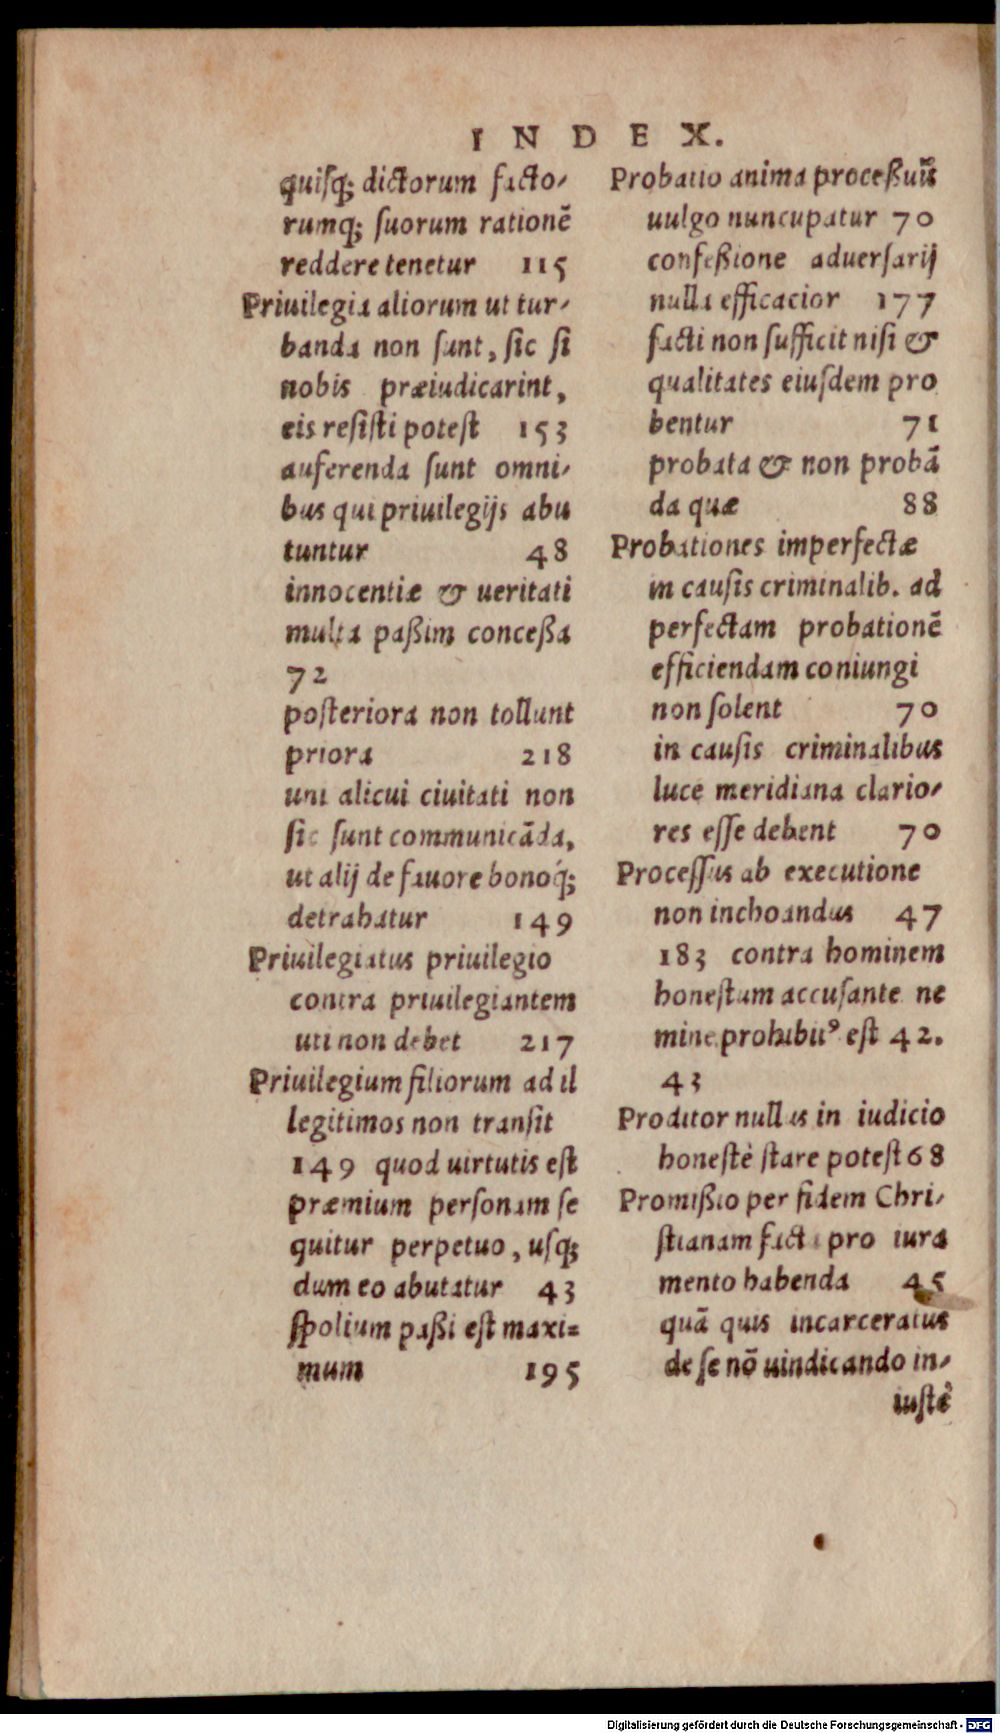 INDEX.
quiſq; dictorum facto-
rumq; ſuorum rationē
reddere tenetur 115
Priuilegia aliorum ut tur-
banda non ſunt, ſic ſi
nobis præiudicarint,
eis reſiſti poteſt 153
auferenda ſunt omni-
bus qui priuilegijs abu
tuntur 48
innocentiæ & ueritati
multa paßim conceßa
72
poſteriora non tollunt
priora 218
uni alicui ciuitati non
ſic ſunt communicāda,
ut alij de fauore bonoq́;
detrahatur 149
Priuilegiatus priuilegio
contra priuilegiantem
uti non debet 217
Priuilegium filiorum ad il
legitimos non tranſit
149 quod uirtutis eſt
præmium perſonam ſe
quitur perpetuo, uſq;
dum eo abutatur 43
ſpolium paßi eſt maxi=
mum 195
Probatio anima proceßuū
uulgo nuncupatur 70
confeßione aduerſarij
nulla efficacior 177
facti non ſufficit niſi &
qualitates eiuſdem pro
bentur 71
probata & non probā
da quæ 88
Probationes imperfectæ
in cauſis criminalib. ad
perfectam probationē
efficiendam coniungi
non ſolent 70
in cauſis criminalibus
luce meridiana clario-
res eſſe debent 70
Proceſſus ab executione
non inchoandus 47
183 contra hominem
honeſtum accuſante ne
mine prohibitꝰ eſt 42.
43
Proditor nullus in iudicio
honeſtè ſtare poteſt 68
Promißio per fidem Chri-
ſtianam facta pro iura
mento habenda 45
quā quis incarceratus
de ſe nō uindicando in-
iuſtè
Digitalisierung gefördert durch die Deutsche Forschungsgemeinschaft - DFG